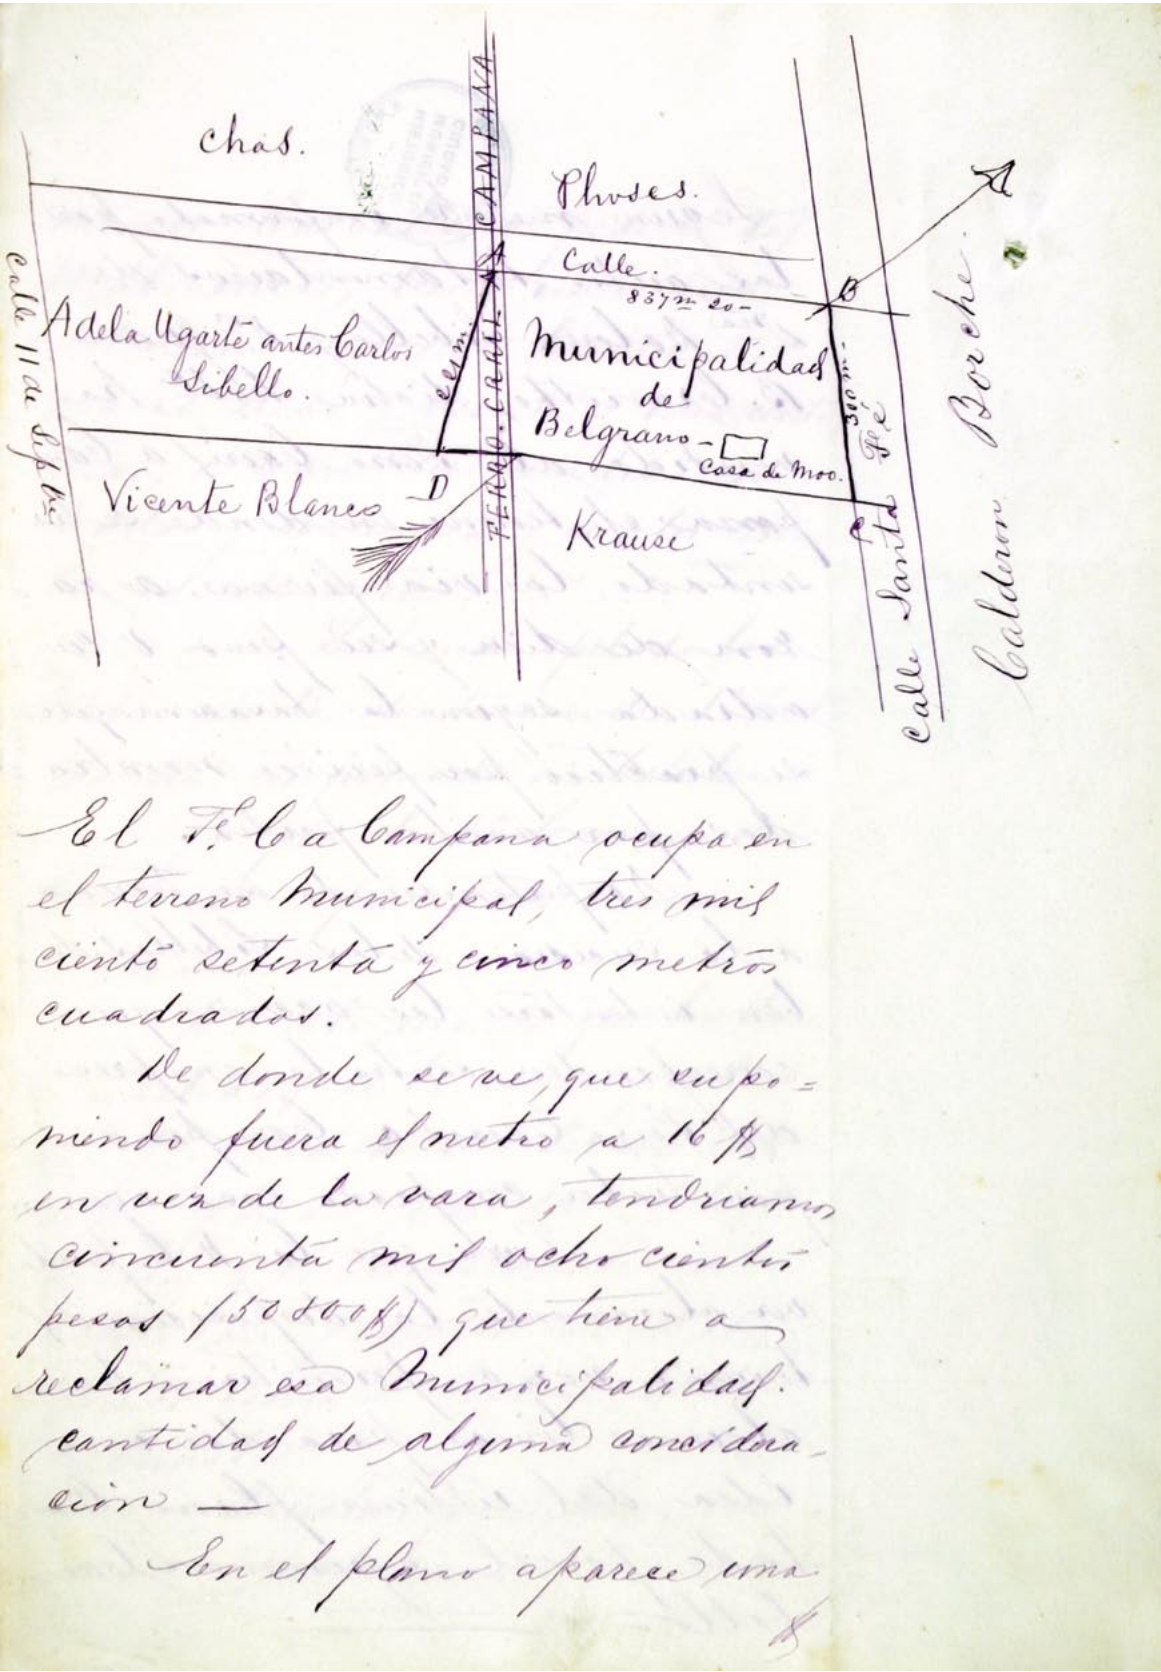 Chas.
Phoses.
FERRO.CARRIL A CAMPANA
Calle.
837 m 20-
B
Calle 11 de Sepbre
Adela Ugarte antes Carlos
Sibello.
Municipalidad
de
Belgrano-
Casa de Moo.
300 m-
Vicente Blanco
D
Krause
C
Calle Santa Fé
Calderon Borche.
El F. C a Campana ocupa en
el terreno Municipal, tres mil
ciento setenta y cinco metros
cuadrados.
De donde se ve, que supo=
niendo fuera el metro a 16 $
en vez de la vara, tendriamos
cincuenta mil ochocientos
pesos (50800$) que tiene a
reclamar esa Municipalidad.
cantidad de alguna concidera-
cion —
En el plano aparece una